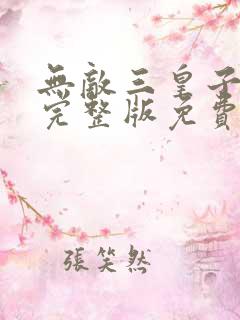 無敵三皇子
完整版免費
張笑然